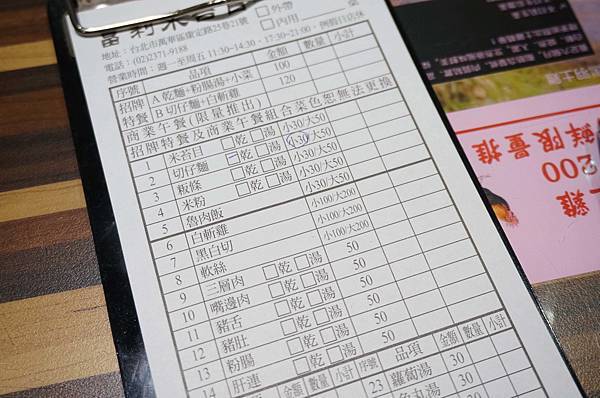 富利米苔目
□外帶
□內用 桌
地址：台北市萬華區康定路25巷21號
電話：(02)2371-9188
營業時間：週一至周五 11:30~14:30，17:30~21:00，例假日店休
序號 品項 金額 數量 小計
招牌 A 乾麵+粉腸湯+小菜 100
特餐 B 切仔麵+白斬雞 120
商業午餐(限量推出)
招牌特餐及商業午餐組合菜色恕無法更換
1 米苔目 □乾 □湯 小30/大50
2 切仔麵 □乾 □湯 小30/大50
3 粄條 □乾 □湯 小30/大50
4 米粉 □乾 □湯 小30/大50
5 魯肉飯 小30/大50
6 白斬雞 小100/大200
7 黑白切 小100/大200
8 軟絲 小100/大200
9 三層肉 50
10 嘴邊肉 □乾 □湯 50
11 豬舌 □乾 □湯 50
12 豬肚 □乾 □湯 50
13 粉腸 □乾 □湯 50
14 肝連 □乾 □湯 50
金額 數量 小計 序號 品項 金額 數量 小計
23 蘿蔔湯 30
魚丸湯 30
鮮限量推
200
雞